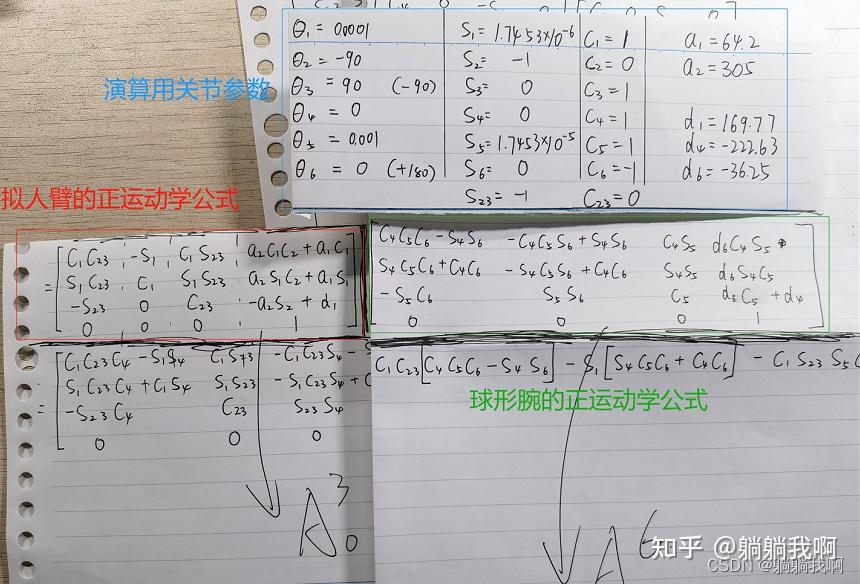 θ₁ = 0.0001 S₁ = 1.7453×10⁻⁶ C₁ = 1 a₁ = 64.2
θ₂ = -90 S₂ = -1 C₂ = 0 a₂ = 305
θ₃ = 90 (-90) S₃ = 0 C₃ = 1
θ₄ = 0 S₄ = 0 C₄ = 1 d₁ = 169.77
θ₅ = 0.001 S₅ = 1.7453×10⁻⁵ C₅ = 1 d₄ = -222.63
θ₆ = 0 (+180) S₆ = 0 C₆ = -1 d₆ = -36.25
S₂₃ = -1 C₂₃ = 0
演算用关节参数
拟人臂的正运动学公式
C₁C₂₃ -S₁ C₁S₂₃ a₂C₁C₂ + a₁C₁
= S₁C₂₃ C₁ S₁S₂₃ a₂S₁C₂ + a₁S₁
-S₂₃ 0 C₂₃ -a₂S₂ + d₁
0 0 0 1
C₄C₅C₆ - S₄S₆ -C₄C₅S₆ + S₄S₆ C₄S₅ d₆C₄S₅
S₄C₅C₆ + C₄C₆ -S₄C₅S₆ + C₄C₆ S₄S₅ d₆S₄C₅
-S₅C₆ S₅S₆ C₅ d₆C₅ + d₄
0 0 0 1
C₁C₂₃C₄ - S₁S₄ C₁S₂₃ -C₁C₂₃S₄ -
= S₁C₂₃C₄ + C₁S₄ S₁S₂₃ -S₁C₂₃S₄ +
-S₂₃C₄ C₂₃ S₂₃S₄
0 0 0
C₁C₂₃[C₄C₅C₆ - S₄S₆] - S₁[S₄C₅C₆ + C₄C₆] - C₁S₂₃S₅
球形腕的正运动学公式
A³₀
A⁶
知乎 @躺躺我啊
CSDN @躺躺我啊